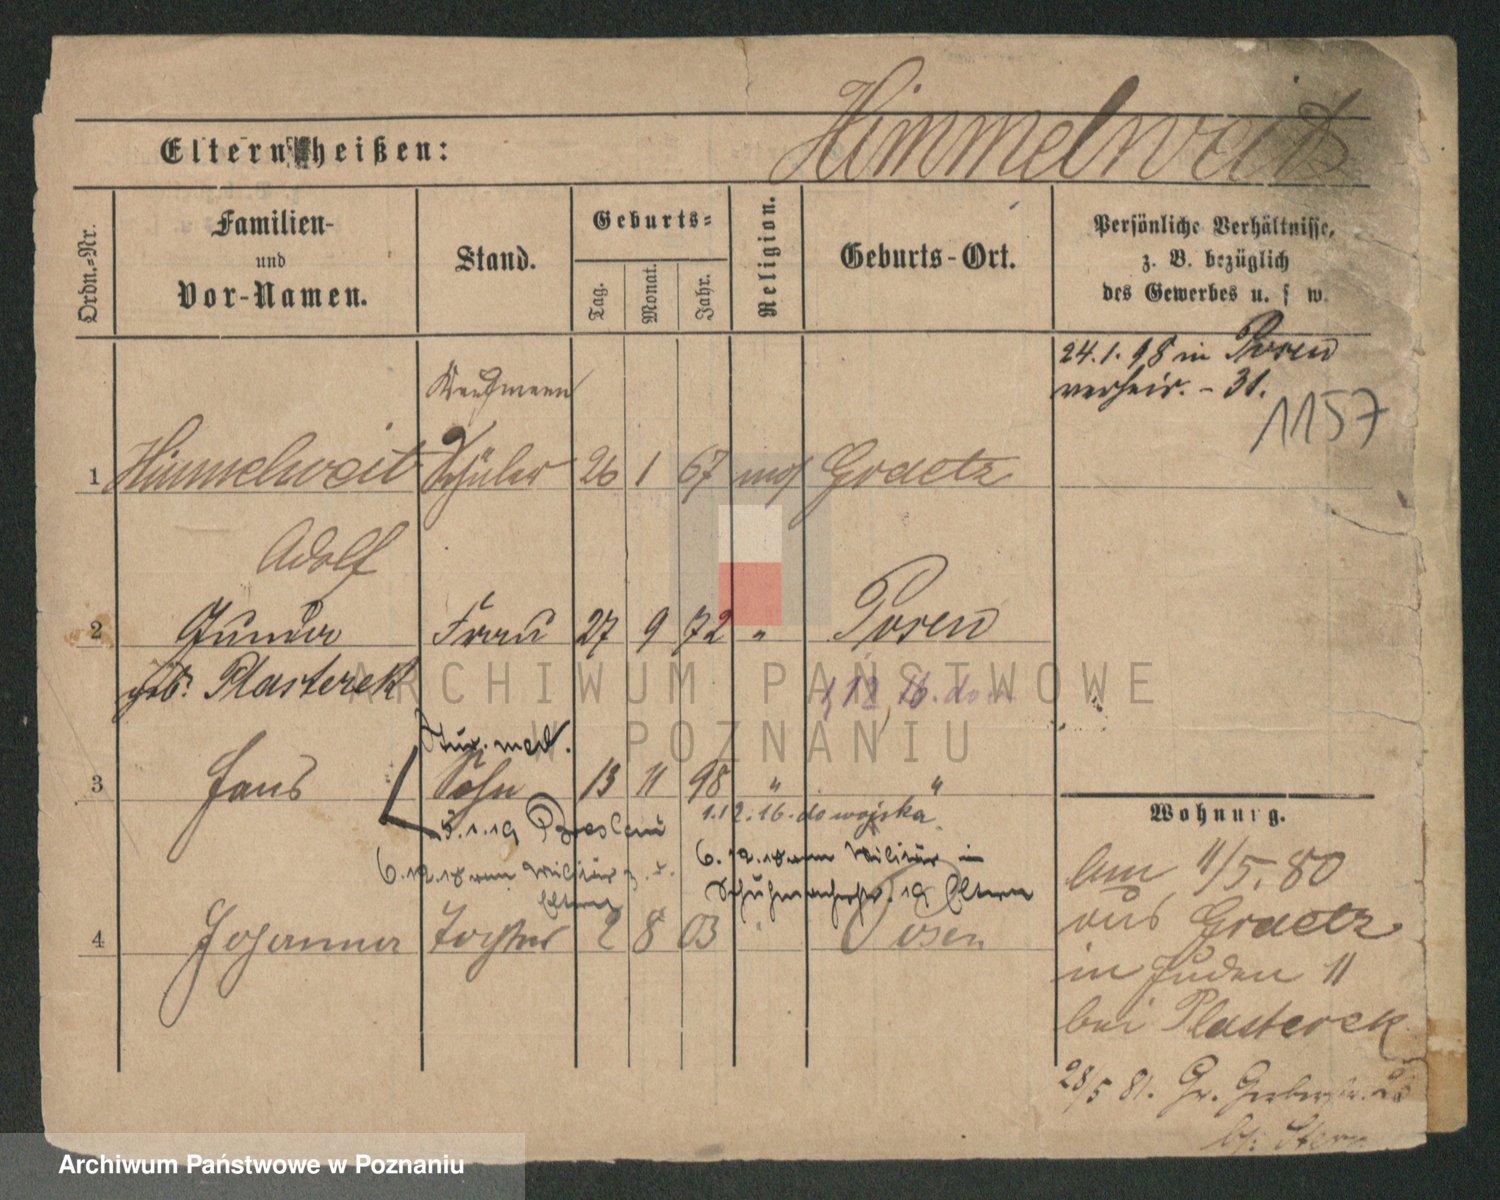 Himmelweit
Eltern heißen:
Ordn.-Nr.
Familien-
und
Vor-Namen.
Stand.
Geburts-
Tag.
Monat.
Jahr.
Religion.
Geburts-Ort.
Persönliche Verhältnisse,
z. B. bezüglich
des Gewerbes u. s w.
24.1.98 in Posen
verheir. - 31.
1157
Kaufmann
1 Himmelweit Schüler 26 1 67 mos Graetz
Adolf
2 Frau 27 9 72 " Posen
geb. Plasterek
stud. med.
3 Hans Sohn 13 11 98 " "
1.12.16. do wojska
5.1.19 Breslau
6.12.18 vom Militär z.
Eltern
6.12.18 vom Militär in
19 Eltern
4 Johanna Tochter 2 8 03 " Posen
Wohnung.
Am 11/5. 80
aus Graetz
in Juden 11
bei Plasterek
28/5 81. Gr. Gerberstr.
b/. Stern
ARCHIWUM PAŃSTWOWE
W POZNANIU
Archiwum Państwowe w Poznaniu